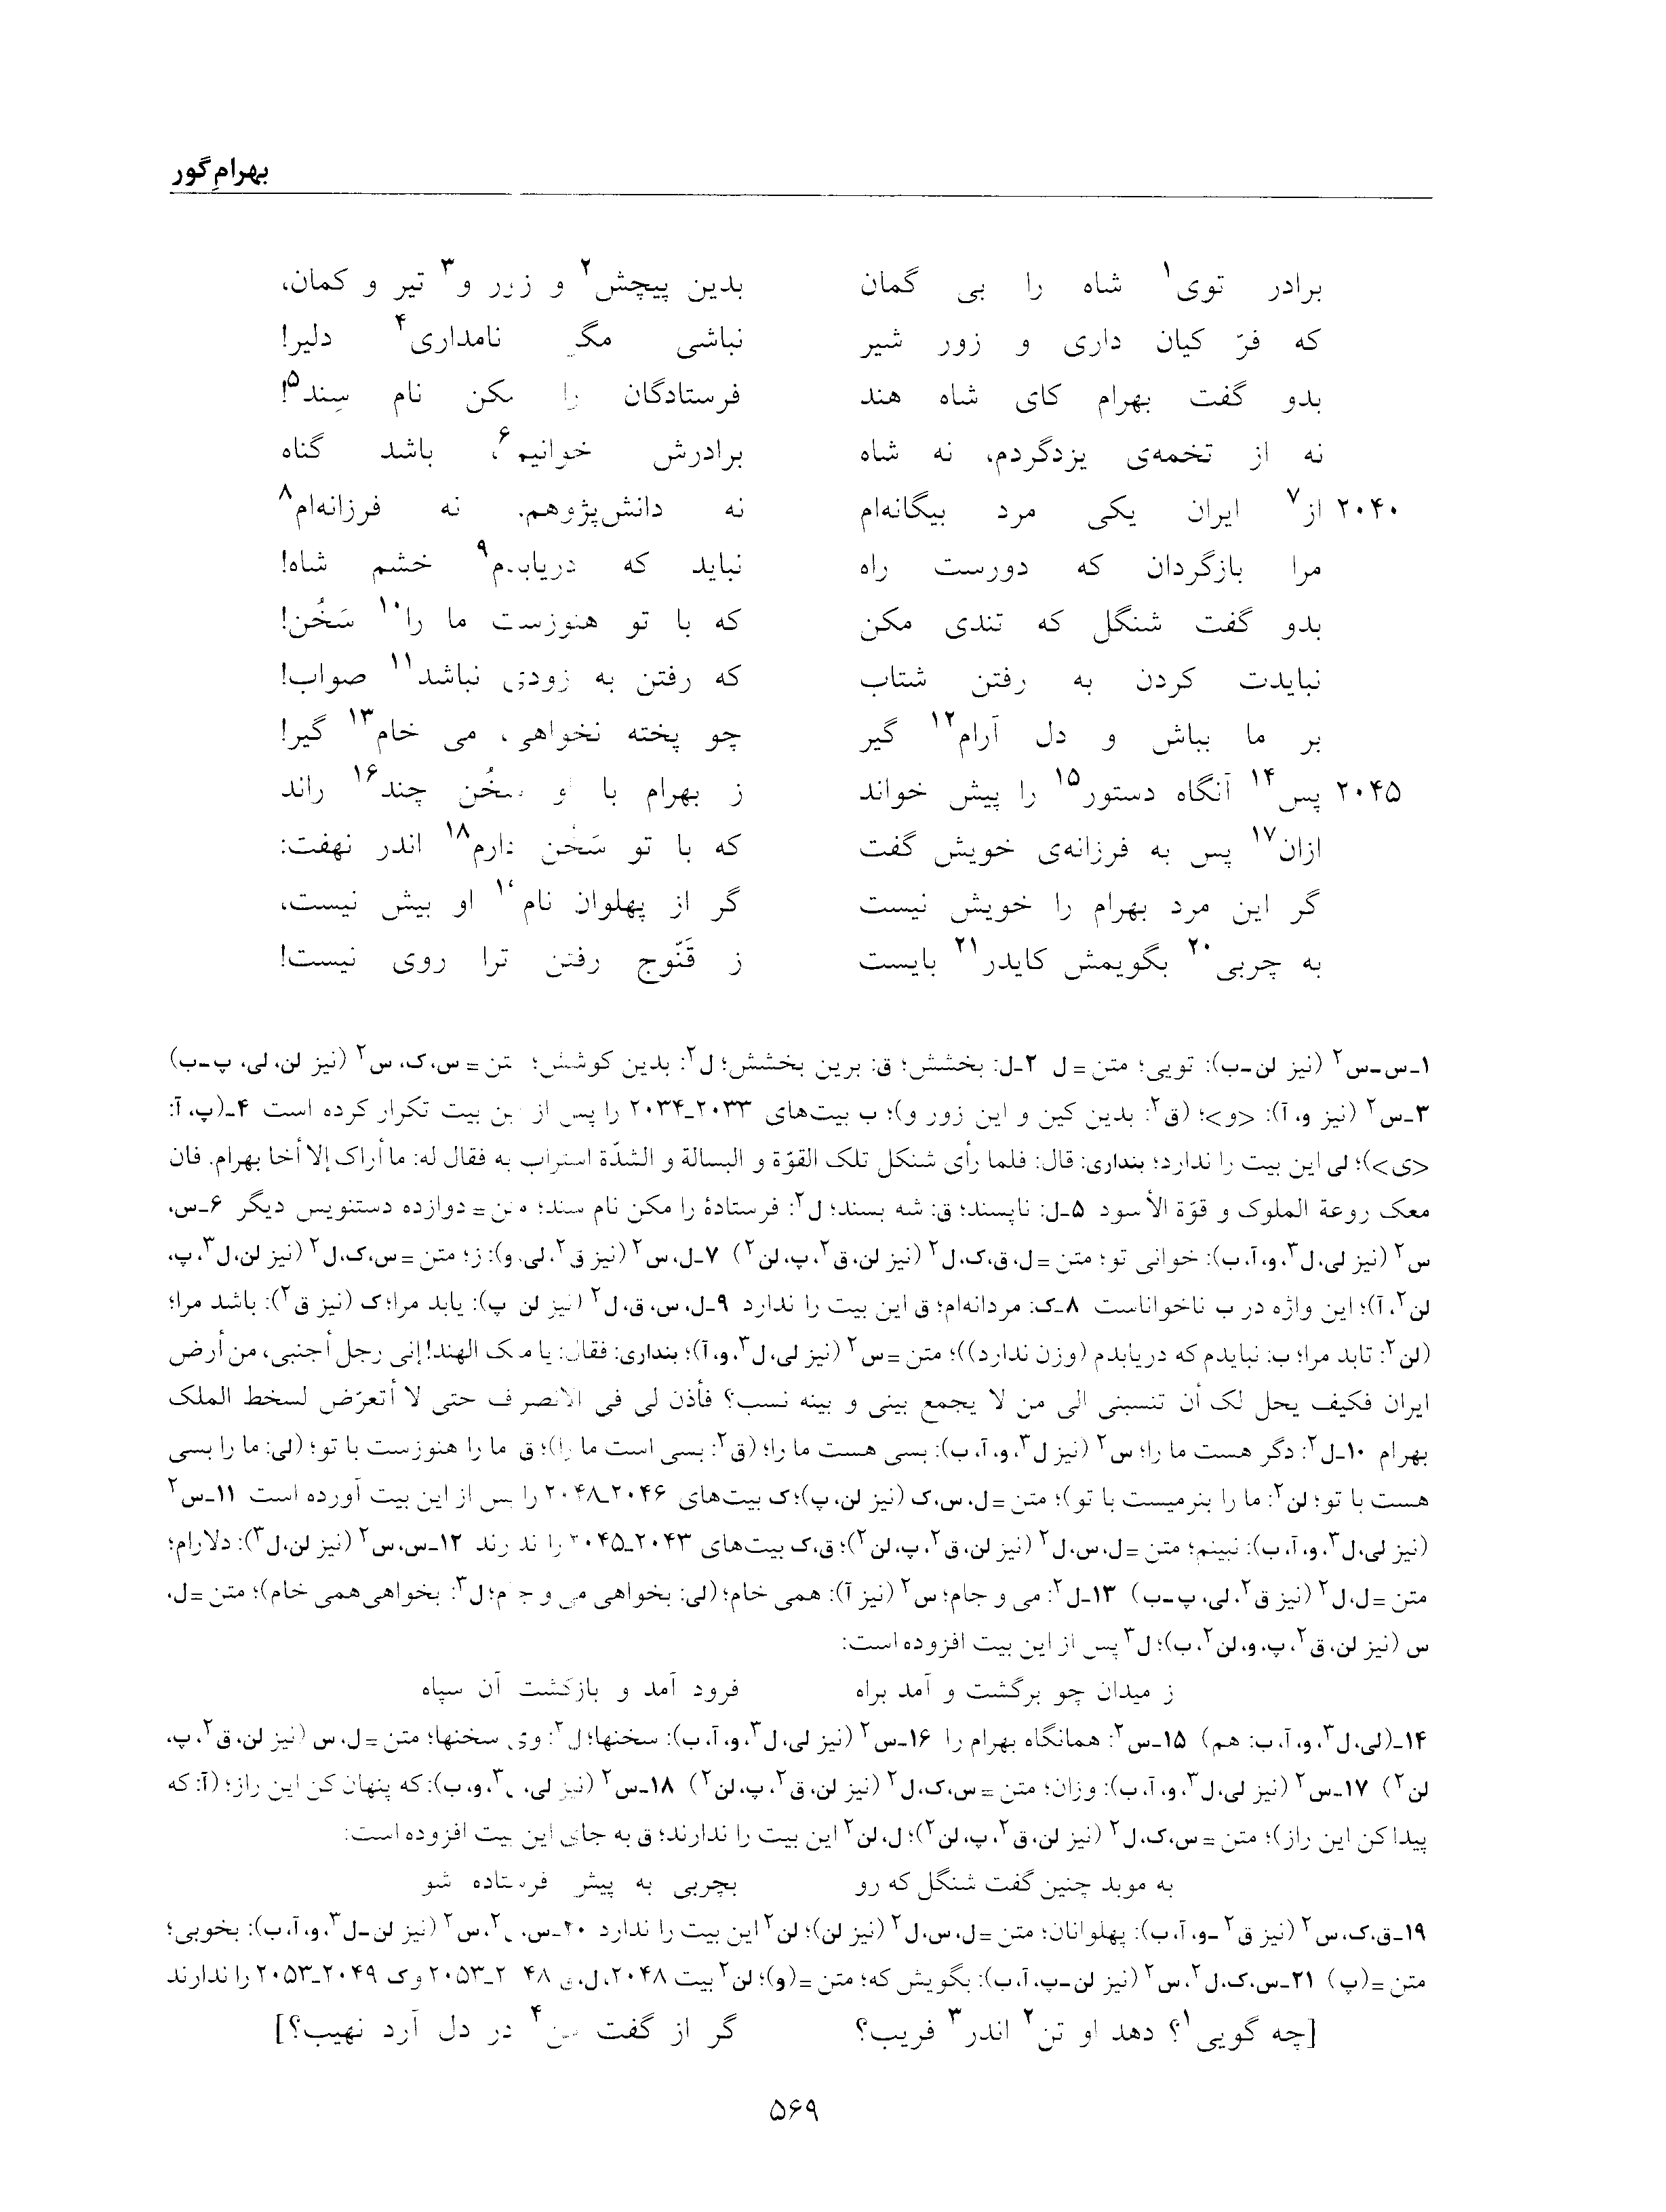 بهرامِ گور
برادر توی۱ شاه را بی گمان بدین پیچش۲ و زور و۳ تیر و کمان،
که فرّ کیان داری و زور شیر نباشی مگر نامداری۴ دلیر!
بدو گفت بهرام کای شاه هند فرستادگان را مکن نام سِند۵!
نه از تخمه‌ی یزدگردم، نه شاه برادرش خوانیم۶، باشد گناه
۲۰۴۰ از۷ ایران یکی مرد بیگانه‌ام نه دانش‌پژوهم. نه فرزانه‌ام۸
مرا بازگردان که دورست راه نباید که دریابدم۹ خشم شاه!
بدو گفت شنگل که تندی مکن که با تو هنوزست ما را۱۰ سَخُن!
نبایدت کردن به رفتن شتاب که رفتن به زودی نباشد۱۱ صواب!
بر ما بباش و دل آرام۱۲ گیر چو پخته نخواهی، می خام۱۳ گیر!
۲۰۴۵ پس۱۴ آنگاه دستور۱۵ را پیش خواند ز بهرام با او سخُن چند۱۶ راند
ازان۱۷ پس به فرزانه‌ی خویش گفت که با تو سَخُن دارم۱۸ اندر نهفت:
گر این مرد بهرام را خویش نیست گر از پهلوان نام۱۹ او بیش نیست،
به چربی۲۰ بگویمش کایدر۲۱ بایست ز قَنّوج رفتن ترا روی نیست!
۱ـ‌س‌ـ‌س۲ (نیز لن‌ـ‌ب): تویی؛ متن = ل ۲ـ‌ل: بخشش؛ ق: برین بخشش؛ ل۲: بدین کوشش؛ متن = س، ک، س۲ (نیز لن، لی، پ‌ـ‌ب)
۳ـ‌س۲ (نیز و، آ): <و>؛ (ق۲: بدین کین و این زور و)؛ ب بیت‌های ۲۰۳۳ـ۲۰۳۴ را پس از این بیت تکرار کرده است ۴ـ‌(پ، آ:
<ی>)؛ لی این بیت را ندارد؛ بنداری: قال: فلما رأی شنکل تلک القوّة و البسالة و الشدّة استراب به فقال له: ما أراک إلا أخا بهرام. فان
معک روعة الملوک و قوّة الأسود ۵ـ‌ل: ناپسند؛ ق: شه بسند؛ ل۲: فرستادهٔ را مکن نام سند؛ متن = دوازده دستنویس دیگر ۶ـ‌س،
س۲ (نیز لی، ل۳، و، آ، ب): خوانی تو؛ متن = ل، ق، ک، ل۲ (نیز لن، ق۲، پ، لن۲) ۷ـ‌ل، س۲ (نیز ق۲، لی، و): ز؛ متن = س، ک، ل۲ (نیز لن، ل۳، پ،
لن۲، آ)؛ این واژه در ب ناخواناست ۸ـ‌ک: مردانه‌ام؛ ق این بیت را ندارد ۹ـ‌ل، س، ق، ل۲ (نیز لن پ): یابد مرا؛ ک (نیز ق۲): باشد مرا؛
(لن۲: تابد مرا؛ ب: نبایدم که دریابدم (وزن ندارد))؛ متن = س۲ (نیز لی، ل۳، و، آ)؛ بنداری: فقال: یا ملک الهند! إنی رجل أجنبی، من أرض
ایران فکیف یحل لک أن تنسبنی الی من لا یجمع بینی و بینه نسب؟ فأذن لی فی الانصراف حتی لا أتعرّض لسخط الملک
بهرام ۱۰ـ‌ل۲: دگر هست ما را؛ س۲ (نیز ل۳، و، آ، ب): بسی هست ما را؛ (ق۲: بسی است ما را)؛ ق ما را هنوزست با تو؛ (لی: ما را بسی
هست با تو؛ لن۲: ما را بنرمیست با تو)؛ متن = ل، س، ک (نیز لن، پ)؛ ک بیت‌های ۲۰۴۶ـ۲۰۴۸ را پس از این بیت آورده است ۱۱ـ‌س۲
(نیز لی، ل۳، و، آ، ب): نبینم؛ متن = ل، س، ل۲ (نیز لن، ق۲، پ، لن۲)؛ ق، ک بیت‌های ۲۰۴۳ـ۲۰۴۵ را ندارند ۱۲ـ‌س، س۲ (نیز لن، ل۳): دلارام؛
متن = ل، ل۲ (نیز ق۲، لی، پ‌ـ‌ب) ۱۳ـ‌ل۲: می و جام؛ س۲ (نیز آ): همی خام؛ (لی: بخواهی می و جام؛ ل۳: بخواهی همی خام)؛ متن = ل،
س (نیز لن، ق۲، پ، و، لن۲، ب)؛ ل۳ پس از این بیت افزوده است:
ز میدان چو برگشت و آمد براه فرود آمد و بازگشت آن سپاه
۱۴ـ‌(لی، ل۳، و، آ، ب: هم) ۱۵ـ‌س۲: همانگاه بهرام را ۱۶ـ‌س۲ (نیز لی، ل۳، و، آ، ب): سخنها؛ ل۲: وی سخنها؛ متن = ل، س (نیز لن، ق۲، پ،
لن۲) ۱۷ـ‌س۲ (نیز لی، ل۳، و، آ، ب): وزان؛ متن = س، ک، ل۲ (نیز لن، ق۲، پ، لن۲) ۱۸ـ‌س۲ (نیز لی، ل۳، و، ب): که پنهان کن این راز؛ (آ: که
پیدا کن این راز)؛ متن = س، ک، ل۲ (نیز لن، ق۲، پ، لن۲)؛ ل، لن۲ این بیت را ندارند؛ ق به جای این بیت افزوده است:
به موبد چنین گفت شنگل که رو بچربی به پیش فرستاده شو
۱۹ـ‌ق، ک، س۲ (نیز ق۲‌ـ‌و، آ، ب): پهلوانان؛ متن = ل، س، ل۲ (نیز لن)؛ لن۲ این بیت را ندارد ۲۰ـ‌س، ل۲، س۲ (نیز لن‌ـ‌ل۳، و، آ، ب): بخوبی؛
متن = (پ) ۲۱ـ‌س، ک، ل۲، س۲ (نیز لن‌ـ‌پ، آ، ب): بگویش که؛ متن = (و)؛ لن۲ بیت ۲۰۴۸، ل، ق ۲۰۴۸ـ۲۰۵۳ و ک ۲۰۴۹ـ۲۰۵۳ را ندارند
[چه گویی۱؟ دهد او تن۲ اندر۳ فریب؟ گر از گفت من۴ در دل آرد نهیب؟]
۵۶۹